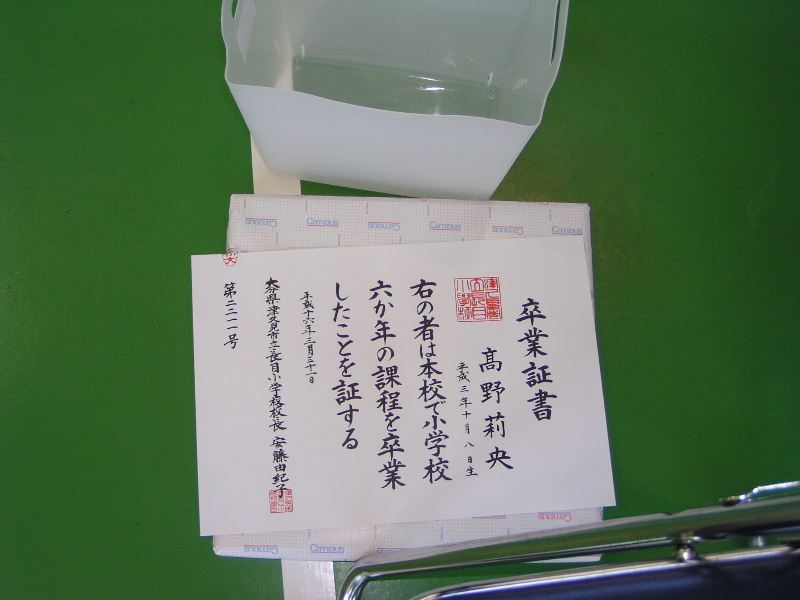 卒業証書
髙野莉央
平成三年十月八日生
右の者は本校で小学校
六か年の課程を卒業
したことを証する
平成十六年三月三十一日
大分県津久見市立長目小学校校長 安藤由紀子
第二三一一号
Campus
Campus
Campus
Campus
Campus
Campus
Campus
Campus